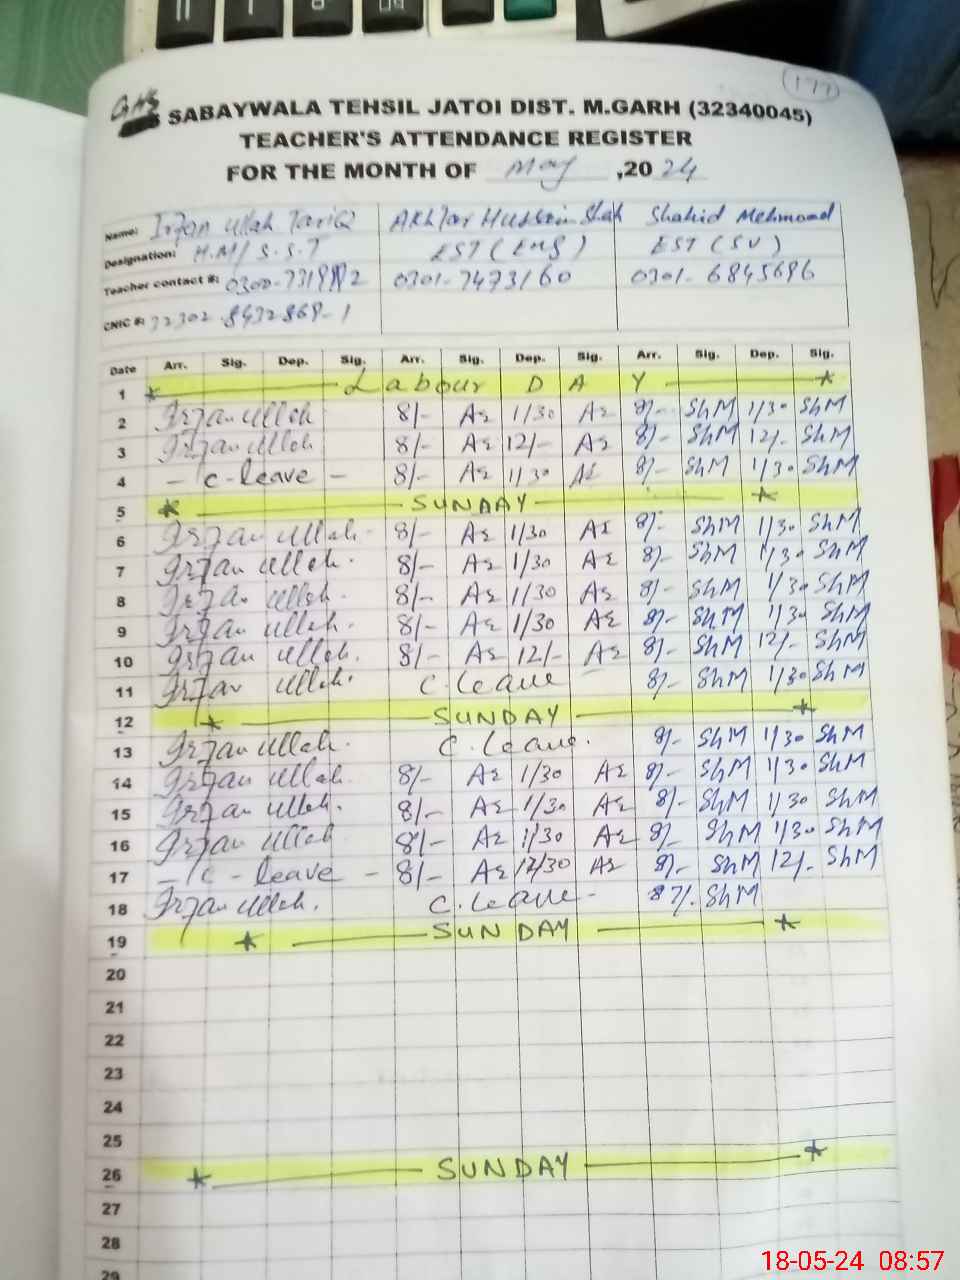 (177)
GHS SABAYWALA TEHSIL JATOI DIST. M.GARH (32340045)
TEACHER'S ATTENDANCE REGISTER
FOR THE MONTH OF May ,20 24
Name: Irfan Ullah Tariq Akhtar Hussain Shah Shahid Mehmood
Designation: H.M/ S.S.T EST (ENG) EST (SV)
Teacher contact #: 0301-7473160 0301-6845686
CNIC #: 32302-8432868-1
Date Arr. Sig. Dep. Sig. Arr. Sig. Dep. Sig. Arr. Sig. Dep. Sig.
1 Labour DAY
2 Irfan ullah 8/- AΣ 1/30 AΣ 8/- ShM 1/30 ShM
3 Irfan ullah 8/- AΣ 12/- AΣ 8/- ShM 12/- ShM
4 - C-leave - 8/- AΣ 1/30 AΣ 8/- ShM 1/30 ShM
5 SUNDAY
6 Irfan ullah. 8/- AΣ 1/30 AΣ 8/- ShM 1/30 ShM
7 Irfan ullah. 8/- AΣ 1/30 AΣ 8/- ShM 1/30 ShM
8 Irfan ullah. 8/- AΣ 1/30 AΣ 8/- ShM 1/30 ShM
9 Irfan ullah. 8/- AΣ 1/30 AΣ 8/- ShM 1/30 ShM
10 Irfan ullah. 8/- AΣ 12/- AΣ 8/- ShM 12/- ShM
11 Irfan ullah. C.leave 8/- ShM 1/30 ShM
12 SUNDAY
13 Irfan ullah. C.leave. 8/- ShM 1/30 ShM
14 Irfan ullah. 8/- AΣ 1/30 AΣ 8/- ShM 1/30 ShM
15 Irfan ullah. 8/- AΣ 1/30 AΣ 8/- ShM 1/30 ShM
16 Irfan ullah 8/- AΣ 1/30 AΣ 8/- ShM 1/30 ShM
17 - C-leave - 8/- AΣ 12/30 AΣ 8/- ShM 12/- ShM
18 Irfan ullah. C.leave - ShM
19 SUNDAY
20
21
22
23
24
25
26 SUNDAY
27
28
29
18-05-24 08:57